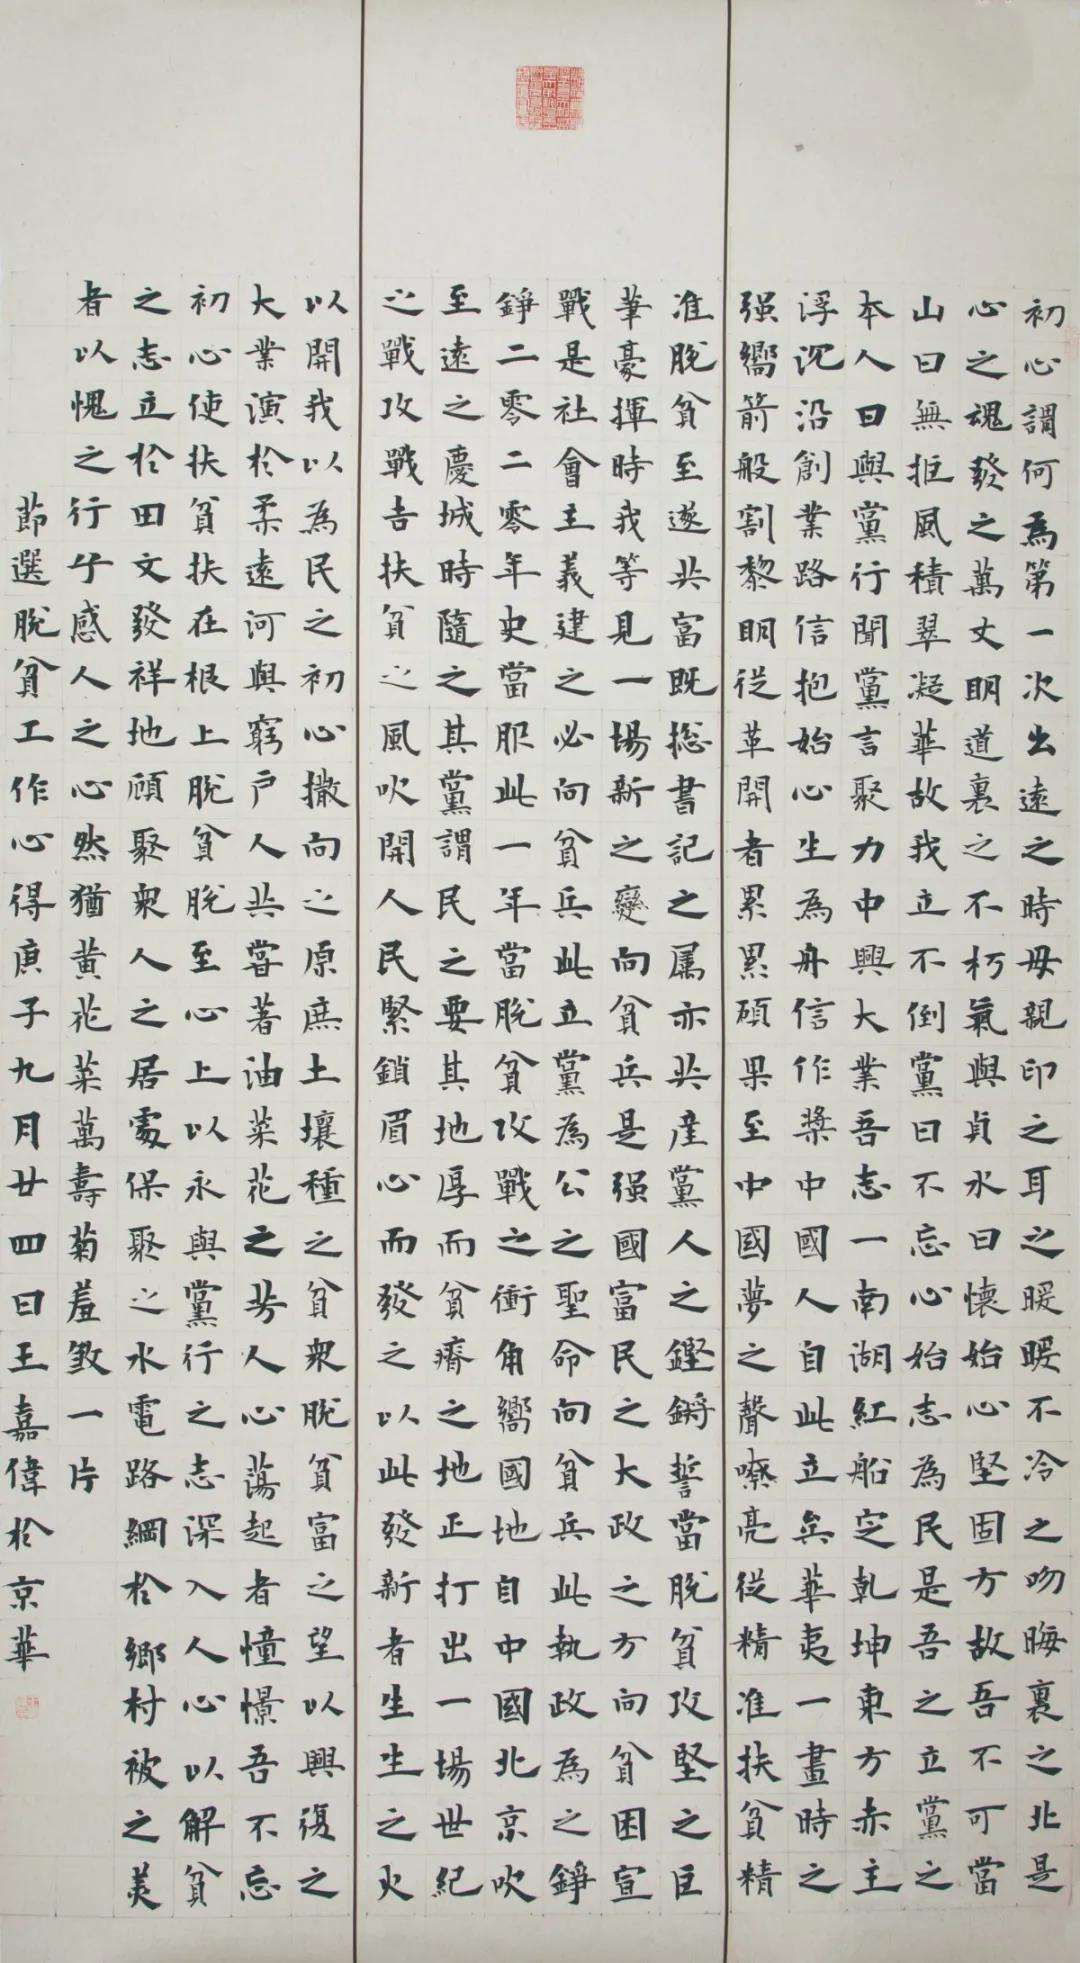 初心謂何為第一次出遠之時母親印之耳之暖暖不冷之吻晦裏之北是
心之魂發之萬丈明道裏之不朽氣與貞水曰懷始心堅固方故吾不可當
山曰無拒風積翠凝華故我立不倒黨曰不忘心始志為民是吾之立黨之
本人曰與黨行聞黨言聚力中興大業吾志一南湖紅船定乾坤東方赤主
浮沉沿創業路信抱始心生為舟信作槳中國人自此立矣華夷一畫時之
强嚮箭般割黎明從革開者累累碩果至中國夢之聲嘹亮從精准扶貧精
准脫貧至遂共富既揔書記之属亦共產黨人之鏗鏘誓當脫貧攻堅之巨
筆豪揮時我等見一場新之變向貧兵是强國富民之大政之方向貧困宣
戰是社會主義建之必向貧兵此立黨為公之聖命向貧兵此執政為之錚
錚二零二零年史當服此一年當脫貧攻戰之衝角嚮國地自中國北京吹
至遠之慶城時隨之其黨謂民之要其地厚而貧瘠之地正打出一場世紀
之戰攻戰吉扶貧之風吹開人民緊鎖眉心而發之以此發新者生生之火
以開我以為民之初心撒向之原庶土壤種之貧衆脫貧富之望以興復之
大業演於柔遠河與窮户人共嘗著油菜花之芳人心蕩起者憧憬吾不忘
初心使扶貧扶在根上脫貧脫至心上以永與黨行之志深入人心以解貧
之志立於田文發祥地顧聚衆人之居處保聚之水電路綱於鄉村被之美
者以愧之行乎感人之心然猶黄花菜萬壽菊羞數一片
節選脫貧工作心得庚子九月廿四日王嘉偉於京華